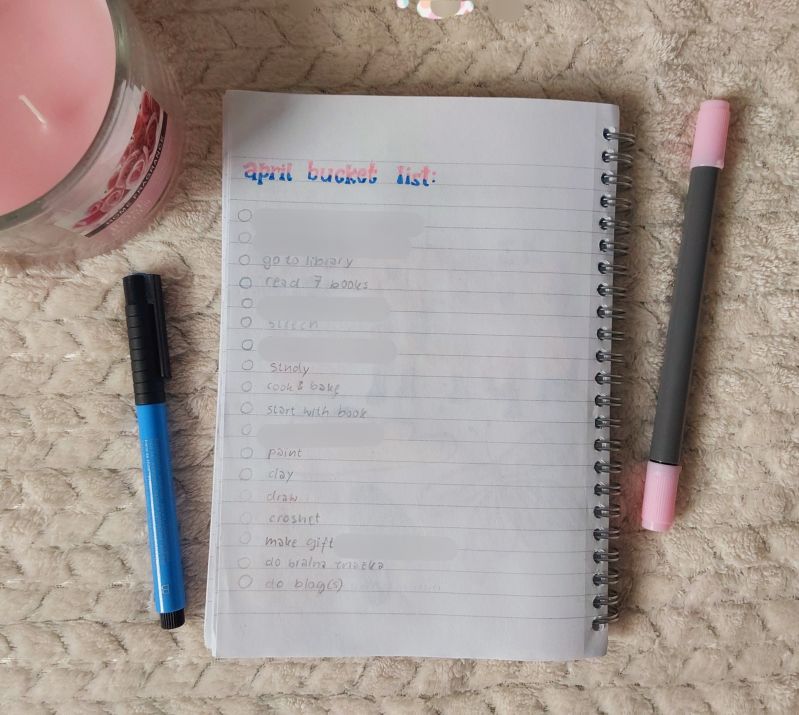 april bucket list:
go to library
read 7 books
study
cook & bake
start with book
paint
clay
draw
croshet
make gift
do bralna
do blog(s)
HOME FRAGRANCE